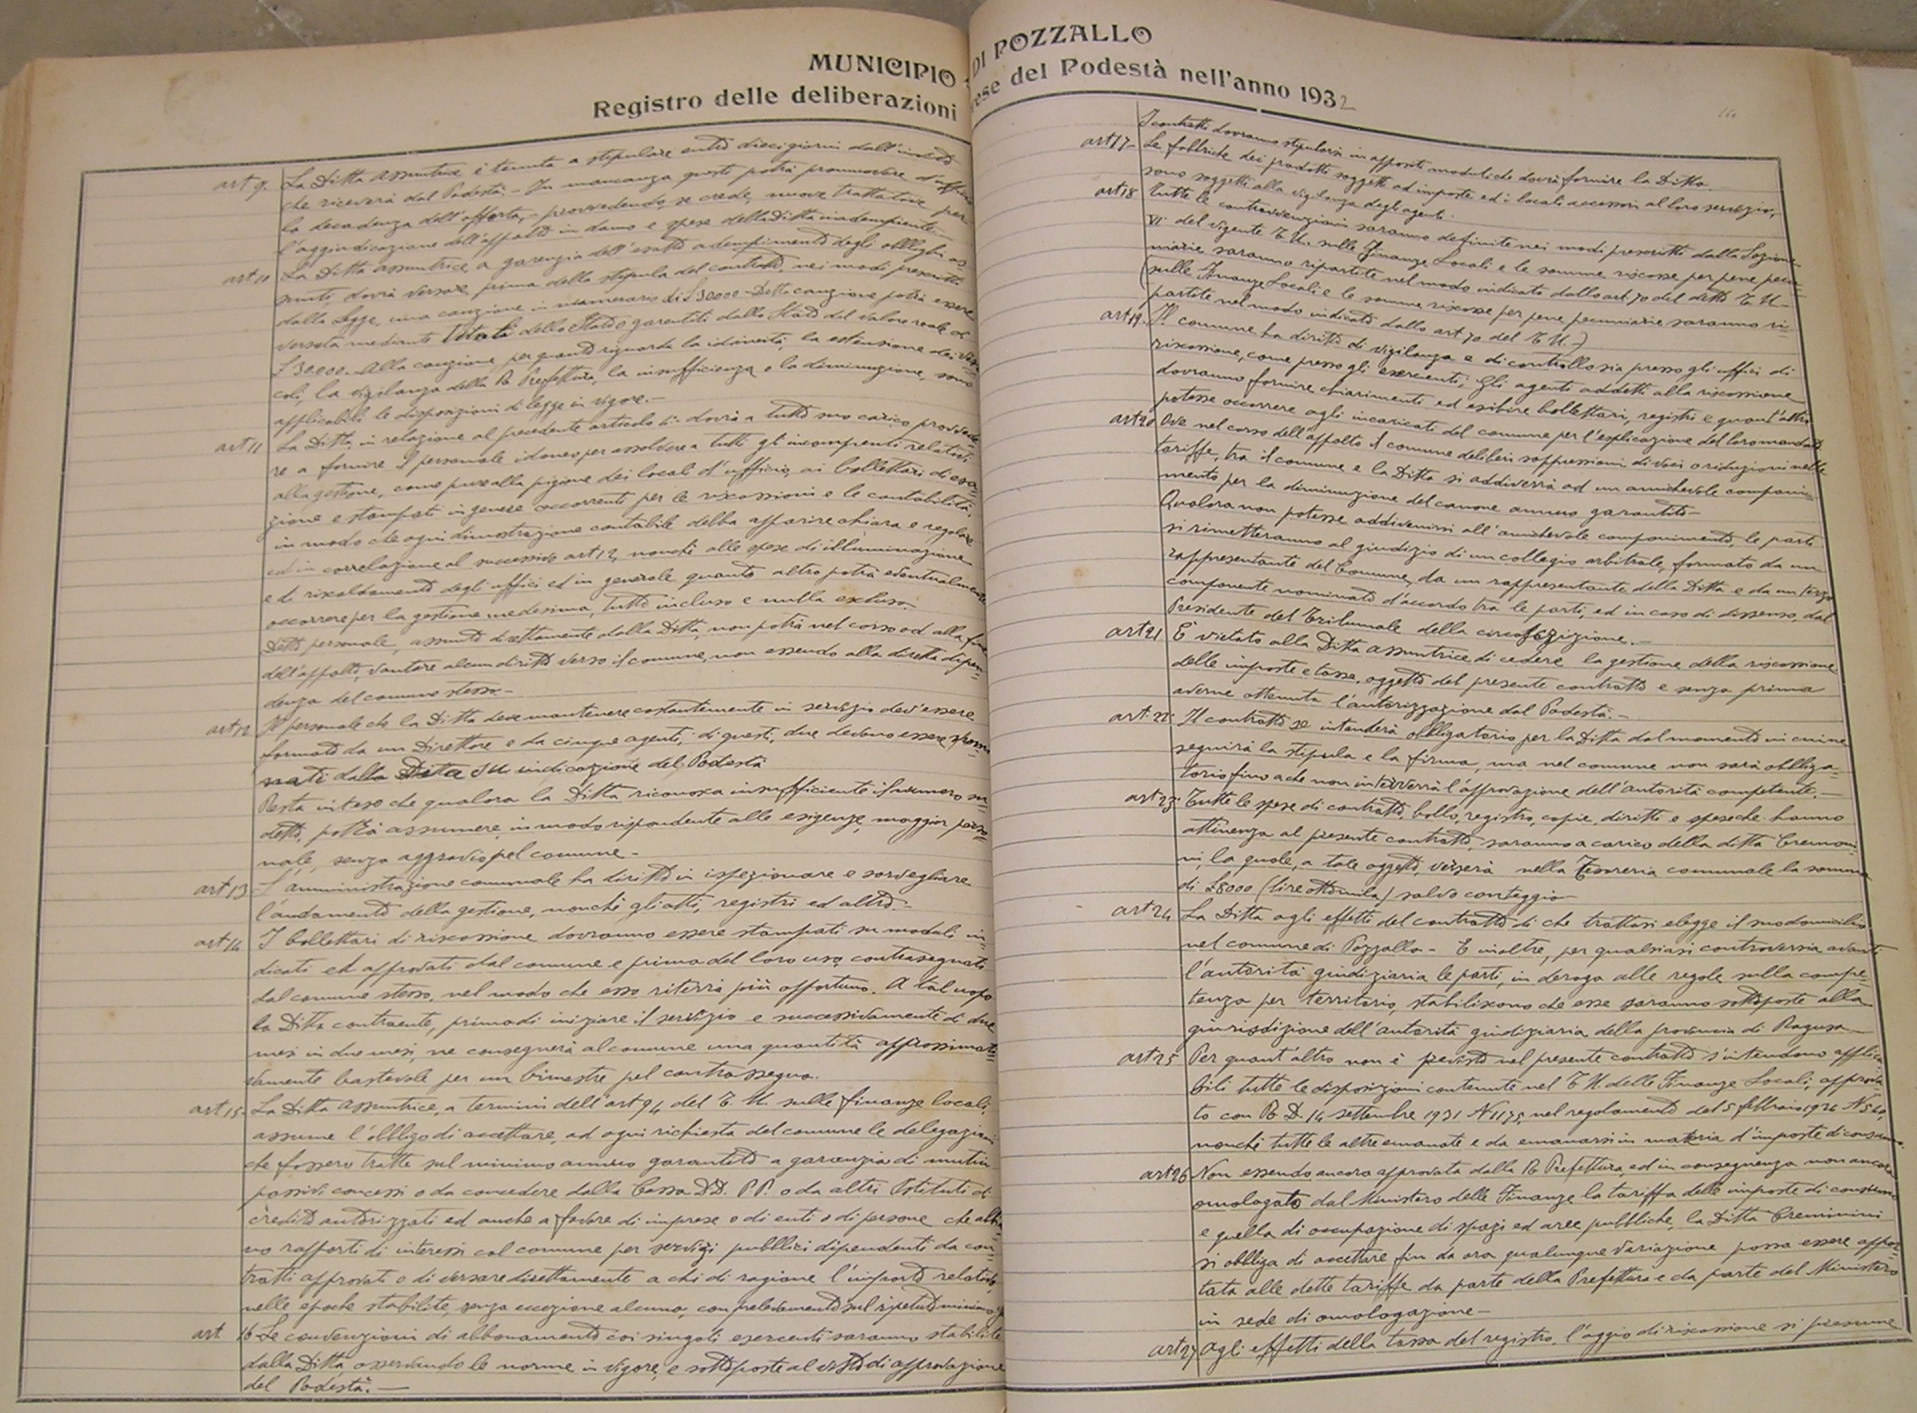 MUNICIPIO DI POZZALLO
Registro delle deliberazioni ese del Podestà nell'anno 1932
art 9. La Ditta assuntrice è tenuta a stipulare entro dieci giorni dall'invito
che riceverà dal Podestà. - In mancanza questi potrà promuovere d'ufficio
la decadenza dell'offerta, - provvedendo, se crede, nuove trattative per
l'aggiudicazione dell'appalto in danno e spese della Ditta inadempiente. -
art 10 La Ditta assuntrice, a garenzia dell'esatto adempimento degli obblighi as
sunti, dovrà versare, prima della stipula del contratto, nei modi prescritti
dalla legge, una cauzione in numerario di £ 30000 - Detta cauzione potrà essere
versata mediante Titoli dello Stato o garentiti dallo Stato del valore reale di
£ 30.000. - Alla cauzione, per quanto riguarda la idoneità, la estensione dei vin
coli, la vigilanza della R Prefettura, la insufficienza o la diminuzione, sono
applicabili le disposizioni di legge in vigore. -
art 11 La Ditta, in relazione al precedente articolo dovrà a tutto suo carico provvede
re a fornire il personale idoneo per assoldere a tutti gli incombenti relativi
alla gestione, come pure alla pigione dei locali d'ufficio, ai bollettari di esa
zione e stampati in genere occorrenti per le riscossioni e le contabilità,
in modo che ogni dimostrazione contabile debba apparire chiara e regolare
ed in correlazione al successivo art 12, nonchè alle spese di illuminazione
e di riscaldamento degli uffici ed in generale quanto altro potrà eventualmente
occorrere per la gestione medesima, tutto incluso e nulla escluso -
Detto personale, assunto direttamente dalla Ditta, non potrà nel corso od alla fine
dell'appalto, vantare alcun diritto verso il comune, non essendo alla diretta dipen
denza del comune stesso -
art 12 Il personale che la Ditta deve mantenere costantemente in servizio dev'essere
formato da un Direttore e da cinque agenti; di questi, due devono essere nomi
nati dalla Ditta su indicazione del Podestà
Resta inteso che qualora la Ditta riconosca insufficiente il numero su
detto, potrà assumere, in modo rispondente alle esigenze, maggior perso
nale, senza aggravio pel comune -
art 13 L'amministrazione comunale ha diritto di ispezionare e sorvegliare
l'andamento della gestione, nonchè gli atti, registri ed altro. -
art 14 I bollettari di riscossione dovranno essere stampati su moduli in
dicati ed approvati dal comune e prima del loro uso, contrasegnati
dal comune stesso, nel modo che esso riterrà più opportuno. A tal uopo
la Ditta contraente, prima di iniziare il servizio e successivamente di due
mesi in due mesi, ne consegnerà al comune una quantità approssimati
vamente bastevole per un bimestre pel contrassegno.
art 15 La Ditta assuntrice, a termini dell'art 94 del T. U. sulle finanze locali,
assume l'obbligo di accettare, ad ogni richiesta del comune le delegazioni
che fossero tratte sul minimo annuo garantito a garenzia di mutui
passivi concessi o da concedere dalla Cassa DD. PP. o da altri Istituti di
credito autorizzati ed anche a favore di imprese o di enti o di persone che abbia
no rapporti di interessi col comune per servizi pubblici dipendenti da con
tratti approvati e di versare direttamente a chi di ragione l'importo relativo,
nelle epoche stabilite, senza eccezione alcuna, con prelevamento sul ripetuto minimo
art 16 Le convenzioni di abbonamento coi singoli esercenti saranno stabilite
dalla Ditta osservando le norme in vigore, e sottoposte al visto di approvazione
del Podestà. -
I contratti dovranno stipularsi in appositi moduli che dovrà fornire la Ditta.
art 17 - Le fabbriche dei prodotti soggetti ad imposte ed i locali accessori al loro servizio,
sono soggetti alla vigilanza degli agenti.
art 18 Tutte le contravvenzioni saranno definite nei modi prescritti dalla Sezione
VI del vigente T. U. sulle Finanze Locali e le somme riscosse per pene pecu
niarie saranno ripartite nel modo indicato dallo art. 70 del detto T. U. -
(sulle Finanze Locali e le somme riscosse per pene pecuniarie saranno ri
partite nel modo indicato dallo art 70 del T. U. -)
art 19. Il comune ha diritto di vigilanza e di controllo sia presso gli uffici di
riscossione, come presso gli esercenti; gli agenti addetti alla riscossione
dovranno fornire chiarimenti ed esibire bollettari, registri e quant'altro
potesse occorrere agli incaricati del comune per l'esplicazione del loro mandato
art 20 Ove nel corso dell'appalto il comune deliberi soppressioni di voci o riduzioni nelle
tariffe, tra il comune e la Ditta si addiverrà ad un amichevole componi
mento per la diminuzione del canone annuo garantito -
Qualora non potesse addivenirsi all'amichevole componimento, le parti
si rimetteranno al giudizio di un collegio arbitrale, formato da un
rappresentante del Comune, da un rappresentante della Ditta e da un terzo
componente nominato d'accordo tra le parti, ed in caso di dissenso, dal
Presidente del Tribunale della circoscrizione. -
art 21 È vietato alla Ditta assuntrice di cedere la gestione della riscossione
delle imposte e tasse, oggetto del presente contratto e senza prima
averne ottenuta l'autorizzazione dal Podestà. -
art. 22. Il contratto si intenderà obbligatorio per la Ditta dal momento in cui ne
seguirà la stipula e la firma, ma nel comune non sarà obbliga
torio fino a che non interverrà l'approvazione dell'autorità competente. -
art 23 Tutte le spese di contratto, bollo, registro, copie, diritti e spese che hanno
attinenza al presente contratto, saranno a carico della ditta Cremoni
ni, la quale, a tale oggetto, verserà nella Tesoreria comunale la somma
di £ 8000 (lire ottomila) salvo conteggio
art 24 La Ditta agli effetti del contratto di che trattasi elegge il suo domicilio
nel comune di Pozzallo - E inoltre, per qualsiasi controversia avanti
l'autorità giudiziaria le parti, in deroga alle regole sulla compe
tenza per territorio, stabiliscono che esse saranno sottoposte alla
giurisdizione dell'autorità giudiziaria della provincia di Ragusa
art 25 Per quant'altro non è previsto nel presente contratto s'intendono applica
bili tutte le disposizioni contenute nel T U delle Finanze Locali, approva
to con R D. 14 settembre 1931 N 1175, nel regolamento del 5 febbraio
nonchè tutte le altre emanate e da emanarsi in materia d'imposte di consumo
art 26 Non essendo ancora approvata dalla R Prefettura, ed in conseguenza non ancora
omologata dal Ministero delle Finanze la tariffa delle imposte di consumo
e quella di occupazione di spazi ed aree pubbliche, la Ditta
si obbliga di accettare fin da ora qualunque variazione possa essere appor
tata alle dette tariffe da parte della Prefettura e da parte del Ministero
in sede di omologazione -
art 27 Agli effetti della tassa del registro, l'aggio di riscossione si presume